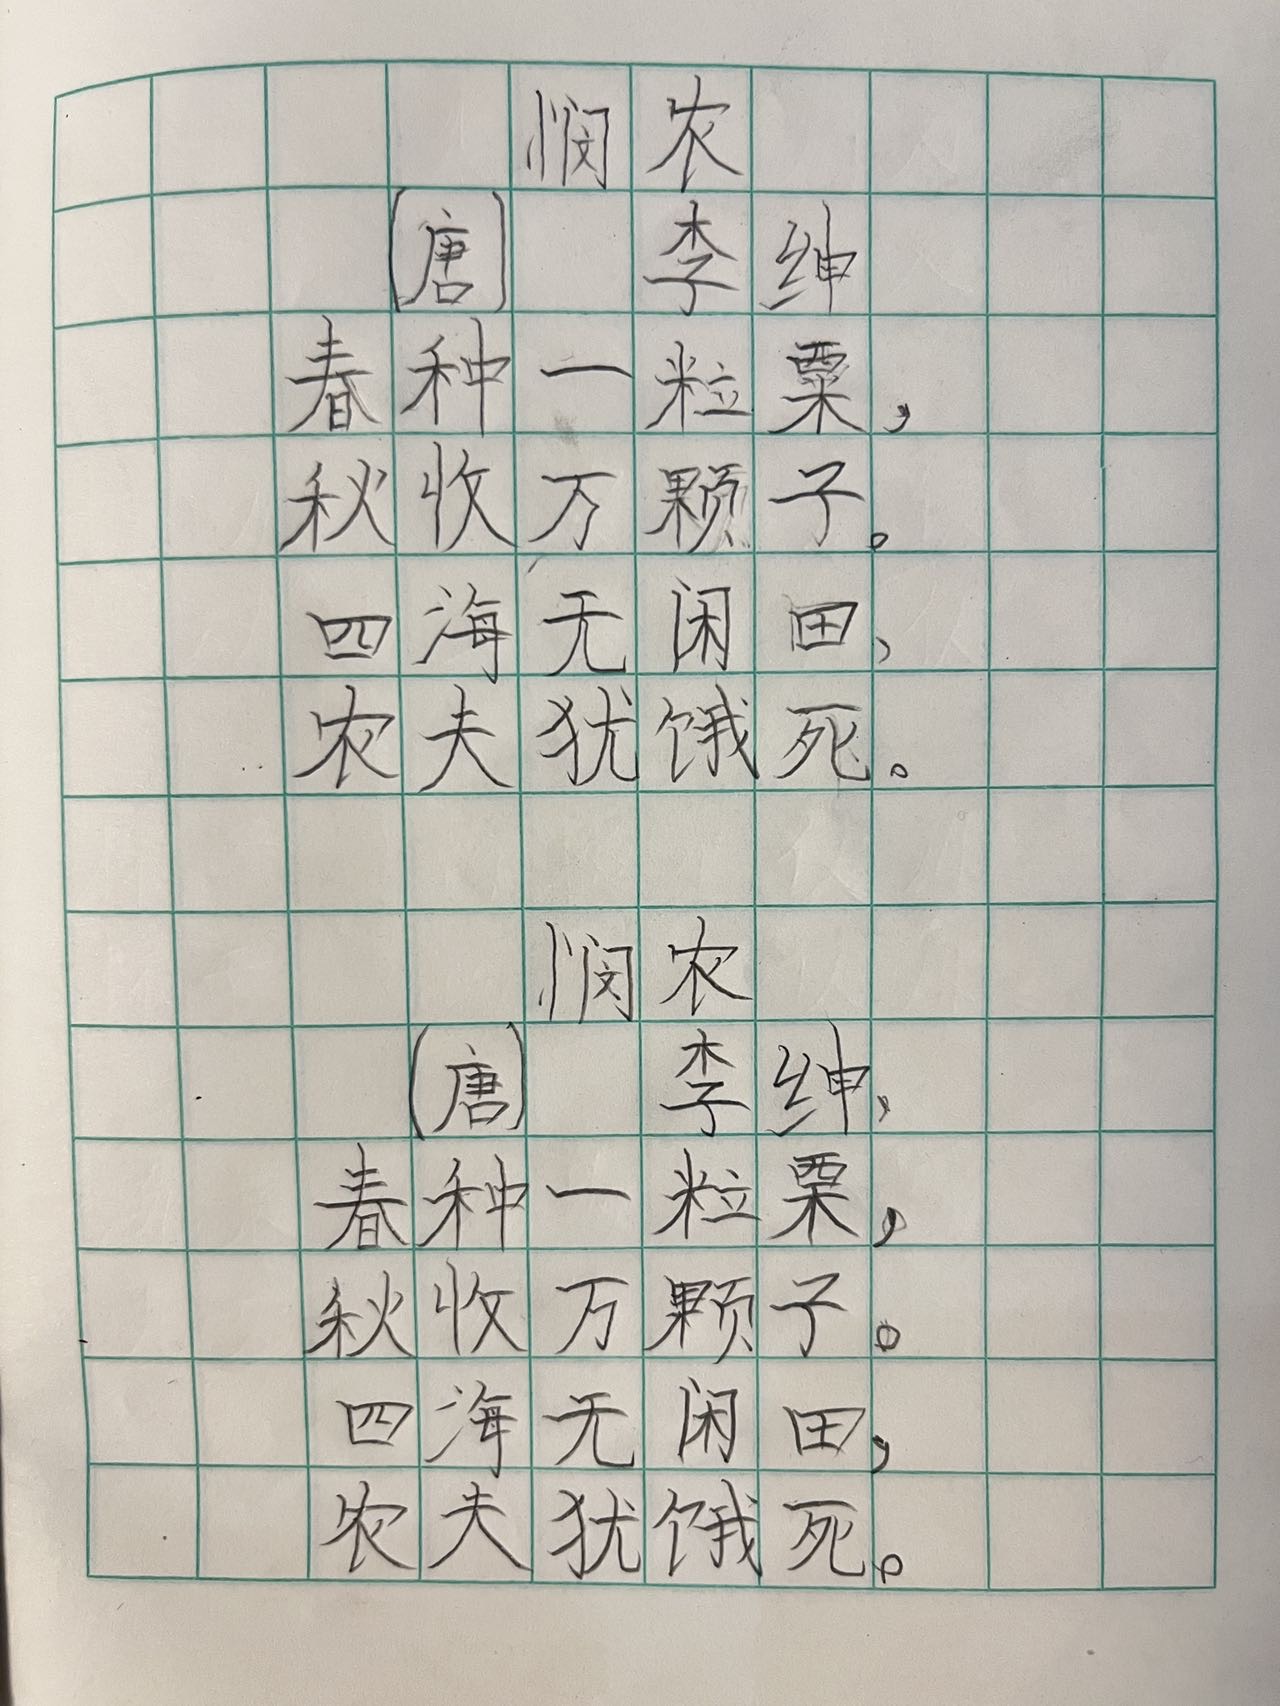 悯农
[唐] 李绅
春种一粒粟,
秋收万颗子。
四海无闲田,
农夫犹饿死。
悯农
(唐) 李绅,
春种一粒粟,
秋收万颗子。
四海无闲田,
农夫犹饿死。